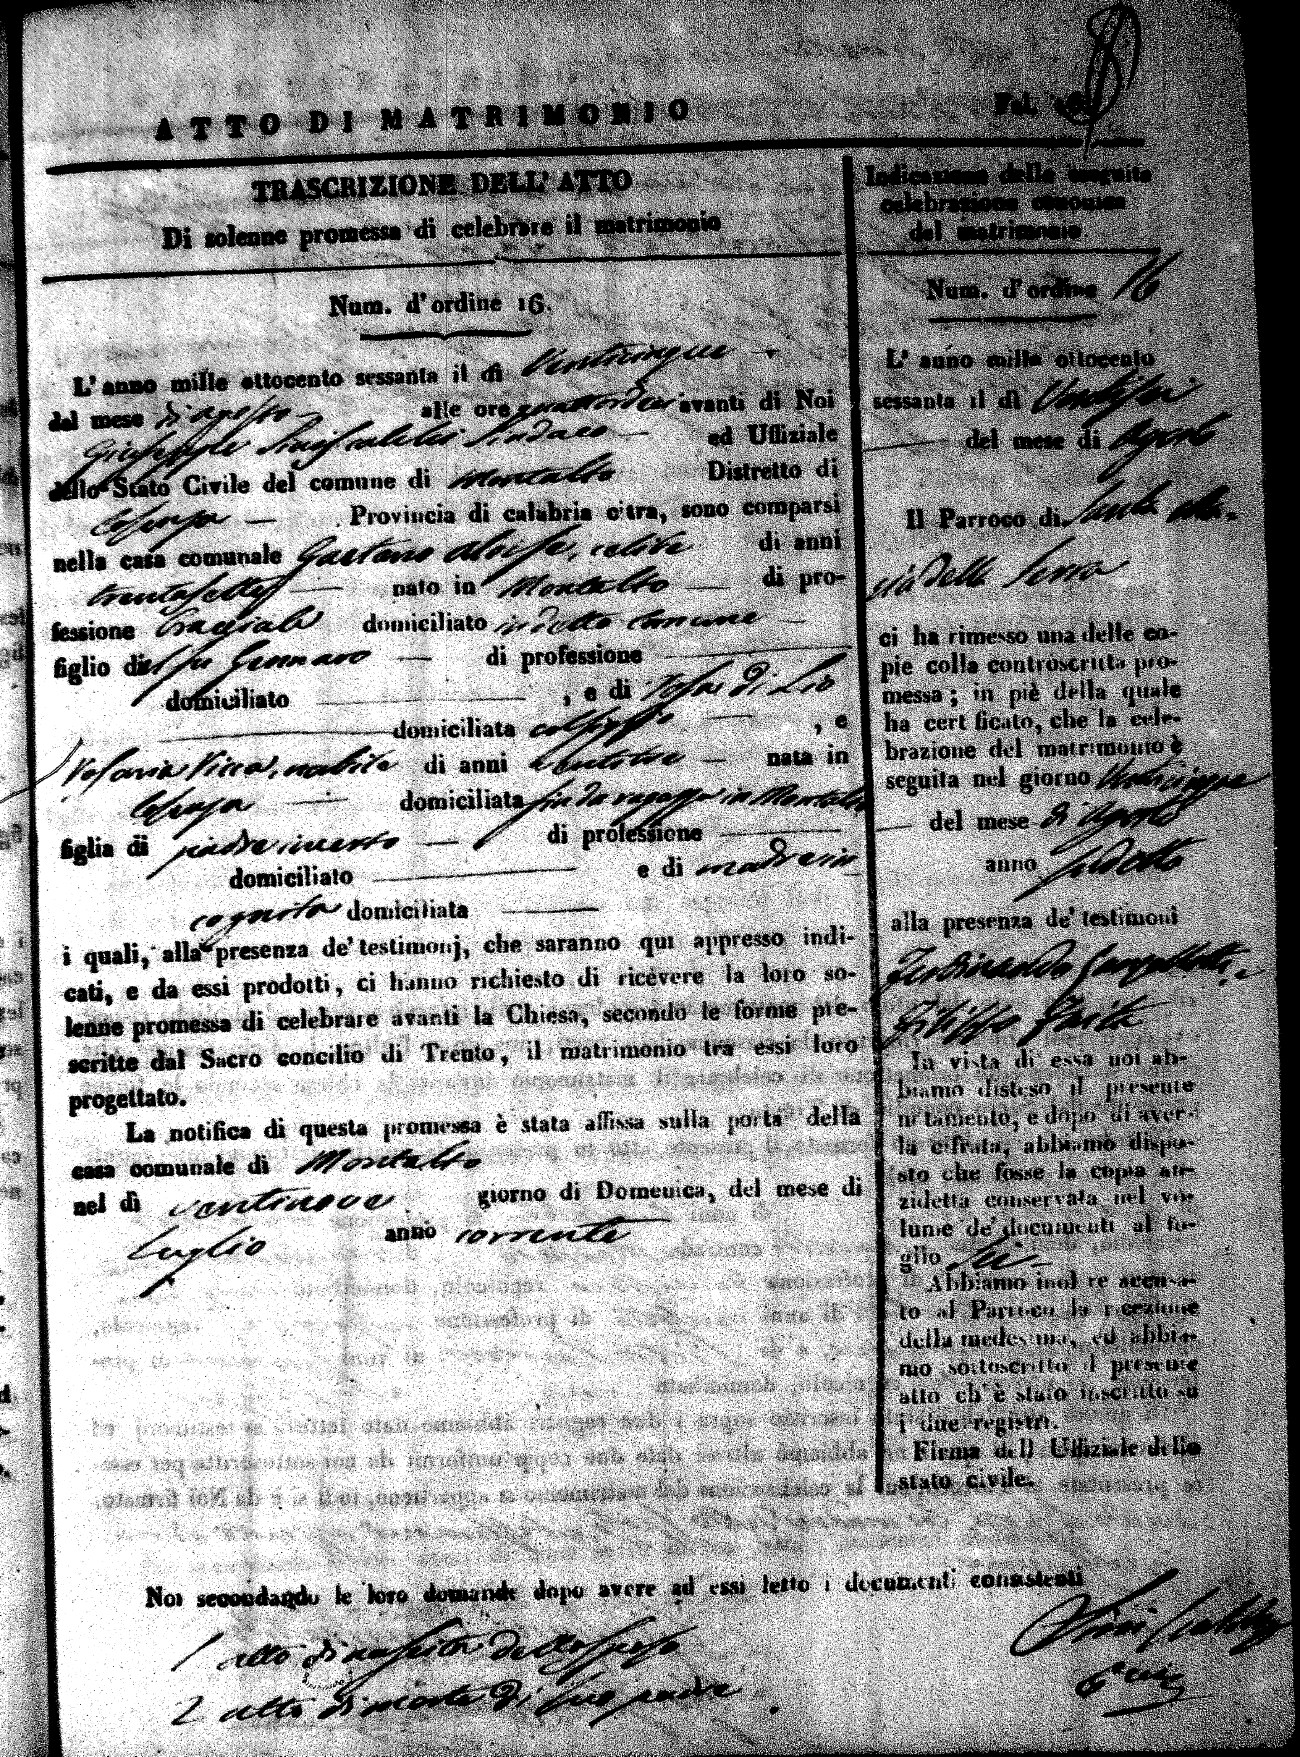 ATTO DI MATRIMONIO
Fol.
TRASCRIZIONE DELL' ATTO
Di solenne promessa di celebrare il matrimonio
Num. d'ordine 16.
L' anno mille ottocento sessanta il dì Venticinque
del mese di agosto alle ore quattordici avanti di Noi
Giuseppe Siniscalchi Sindaco ed Uffiziale
dello Stato Civile del comune di Montalto Distretto di
Cosenza Provincia di calabria citra, sono comparsi
nella casa comunale Gaetano celibe di anni
trentasette nato in Montalto di pro-
fessione Bracciale domiciliato in detto Comune
figlio del fu Gennaro di professione
domiciliato , e di Rosa di Lio
domiciliata , e
nubile di anni ventotto nata in
Cosenza domiciliata fin da ragazza in Montalto
figlia di padre incerto di professione
domiciliato e di madre in
cognita domiciliata
i quali, alla presenza de' testimonj, che saranno qui appresso indi-
cati, e da essi prodotti, ci hanno richiesto di ricevere la loro so-
lenne promessa di celebrare avanti la Chiesa, secondo le forme pre-
scritte dal Sacro concilio di Trento, il matrimonio tra essi loro
progettato.
La notifica di questa promessa è stata affissa sulla porta della
casa comunale di Montalto
nel dì ventinove giorno di Domenica, del mese di
Luglio anno corrente
Indicazione della seguita
celebrazione canonica
del matrimonio
Num. d'ordine 16
L' anno mille ottocento
sessanta il dì Ventisei
del mese di Agosto
Il Parroco di Santa Ma.
ria della Serra
ci ha rimesso una delle co-
pie colla controscritta pro-
messa; in piè della quale
ha certificato, che la cele-
brazione del matrimonio è
seguita nel giorno Venticinque
del mese di Agosto
anno sudetto
alla presenza de' testimoni
Ferdinando
Filippo
In vista di essa noi ab-
biamo disteso il presente
notamento, e dopo di aver-
la cifrata, abbiamo dispo-
sto che fosse la copia an-
zidetta conservata nel vo-
lume de' documenti al fo-
glio Sei
Abbiamo inoltre accusa-
to al Parroco la ricezione
della medesima, ed abbia-
mo sottoscritto il presente
atto ch' è stato inscritto su
i due registri.
Firma dell Uffiziale dello
stato civile.
Noi secondando le loro domande dopo avere ad essi letto i documenti consistenti
1 atto di nascita dello sposo
2 atto di morte di suo padre